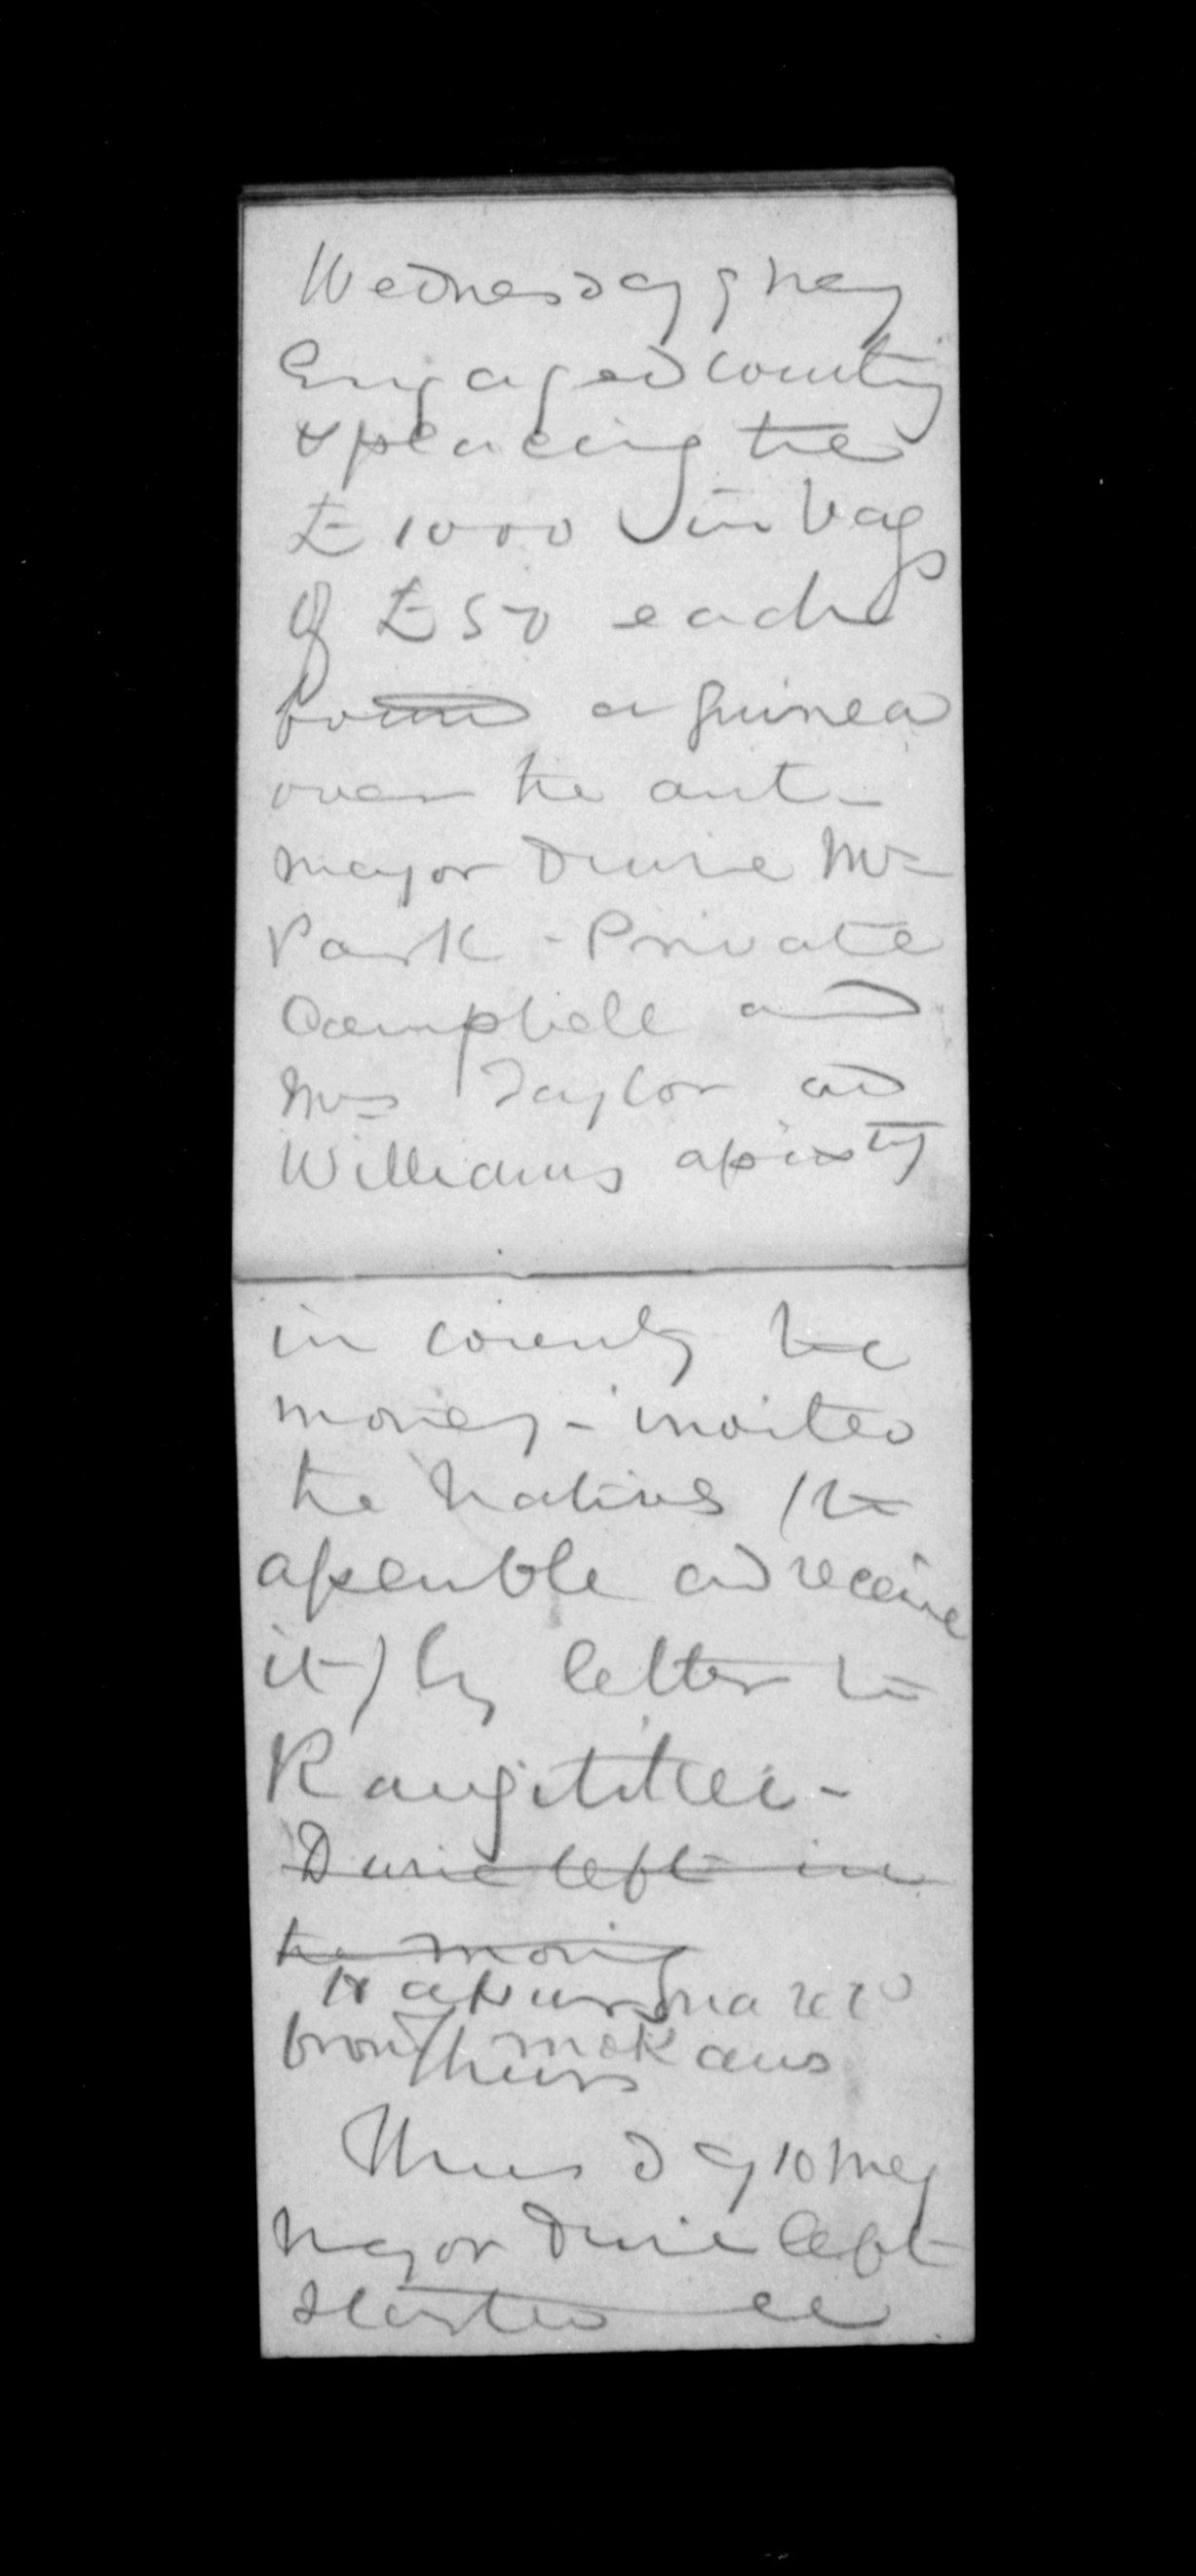 Wednesday 9 May
Engaged counting
& placing the
£1000 in bags
of £50 each
found a guinea
over the amt -
Major Durie Mr
Park - Private
Campbell and
Mrs Taylor and
Williams assistg
in countg the
money - invited
the Natives (to
assemble and receive
it) by letter to
Rangitikei -
Durie left in
the morning
brought
Thursday 10 May
Major Durie left
started